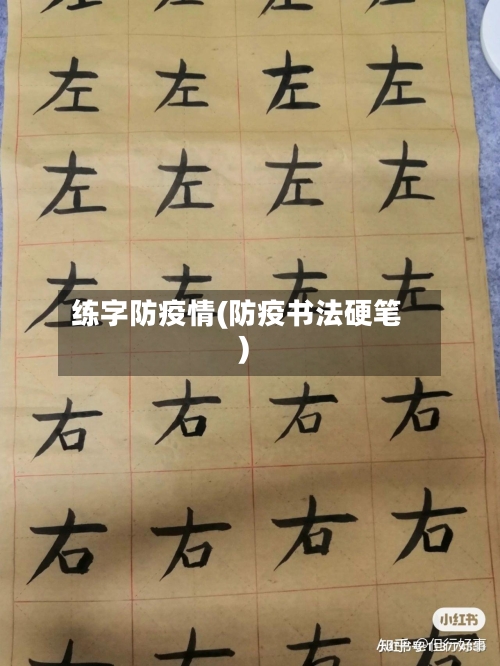 左 左 左 左
左 左 左 左
左 左 左 左
练字防疫情(防疫书法硬笔
)
右 右 右 右
右 右 右 右
小红书
知乎 @但行好事